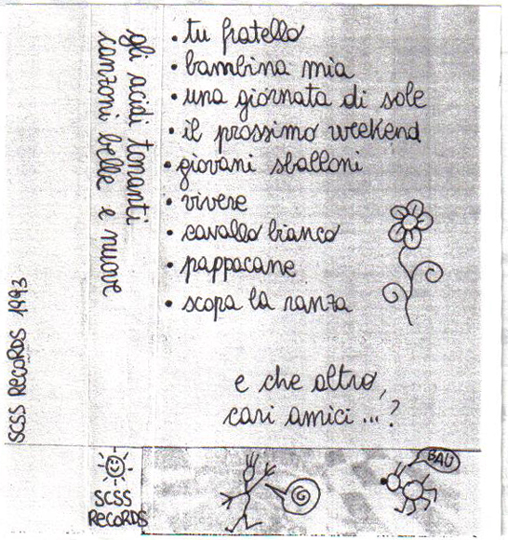 • tu fratello
• bambina mia
• una giornata di sole
• il prossimo weekend
• giovani sballoni
• vivere
• cavallo bianco
• pappacane
• scopa la ranza
e che altro,
cari amici ...?
gli acidi tonanti
canzoni belle e nuove
SCSS RECORDS 1993
SCSS
RECORDS
BAU